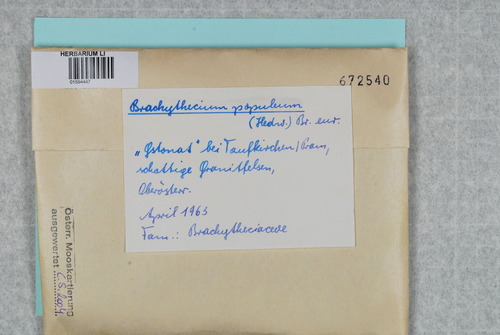 HERBARIUM LI
01584447
672540
Brachythecium populeum
(Hedw.) Br. eur.
„Ostonat“ bei Taufkirchen/Pram,
schattige Granitfelsen,
Oberösterr.
April 1963
Fam.: Brachytheciaceae
Österr. Mooskartierung
ausgewertet